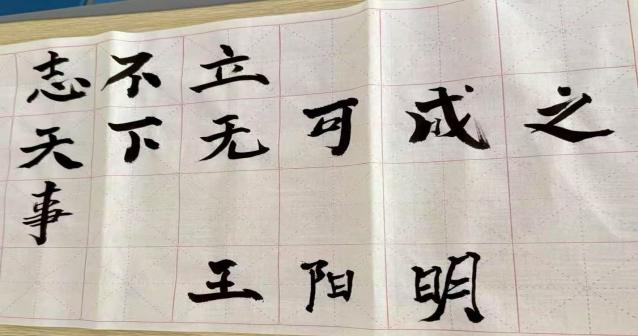 志不立
天下无可成之
事
王阳明